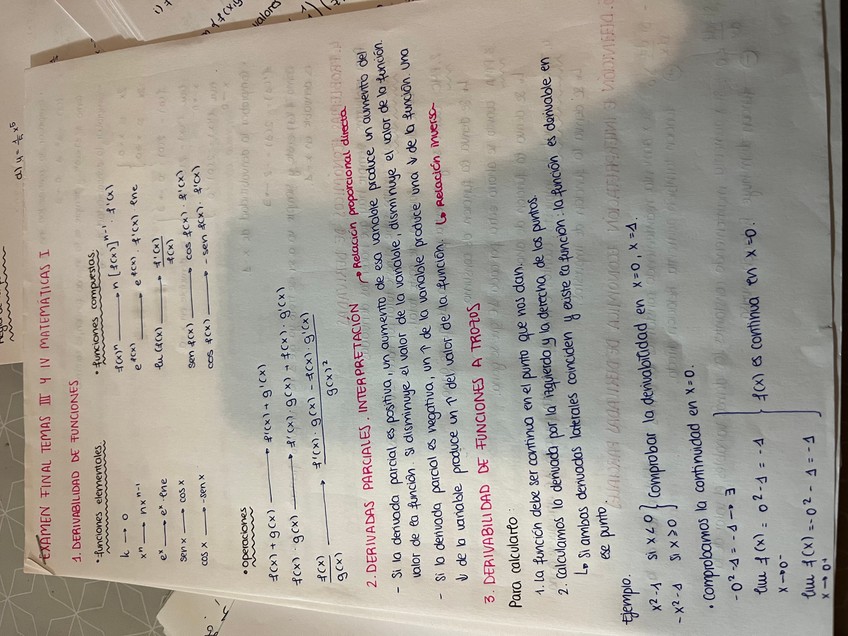 EXAMEN FINAL TEMAS III Y IV MATEMÁTICAS I
1. DERIVABILIDAD DE FUNCIONES
• funciones elementales
k → 0
xⁿ → nxⁿ⁻¹
eˣ → eˣ · lne
sen x → cos x
cos x → -sen x
• funciones compuestas
f(x)ⁿ → n [f(x)]ⁿ⁻¹ · f'(x)
e f(x) → e f(x) · f'(x) lne
ln f(x) → f'(x) / f(x)
sen f(x) → cos f(x) · f'(x)
cos f(x) → - sen f(x) · f'(x)
• operaciones
f(x) + g(x) → f'(x) + g'(x)
f(x) · g(x) → f'(x) · g(x) + f(x) · g'(x)
f(x) / g(x) → f'(x) · g(x) - f(x) · g'(x) / g(x)²
2. DERIVADAS PARCIALES. INTERPRETACIÓN
→ Relación proporcional directa
- Si la derivada parcial es positiva, un aumento de esa variable produce un aumento del
valor de la función. Si disminuye el valor de la variable, disminuye el valor de la función.
- Si la derivada parcial es negativa, un ↑ de la variable produce una ↓ de la función. Una
↓ de la variable produce un ↑ del valor de la función. ↳ Relación inversa
3. DERIVABILIDAD DE FUNCIONES A TROZOS
Para calcularlo:
1. La función debe ser continua en el punto que nos dan.
2. Calculamos la derivada por la izquierda y la derecha de los puntos.
↳ Si ambas derivadas laterales coinciden y existe la función: la función es derivable en
ese punto.
Ejemplo.
x²-1 si x<0 } Comprobar la derivabilidad en x=0, x=1.
-x²-1 si x>0
• Comprobamos la continuidad en x=0.
-0²-1 = -1 → ∃
lim f(x) = 0²-1 = -1 } f(x) es continua en x=0.
x→0⁻
lim f(x) = -0² - 1 = -1
x→0⁺
d) y = 1/5 x⁵